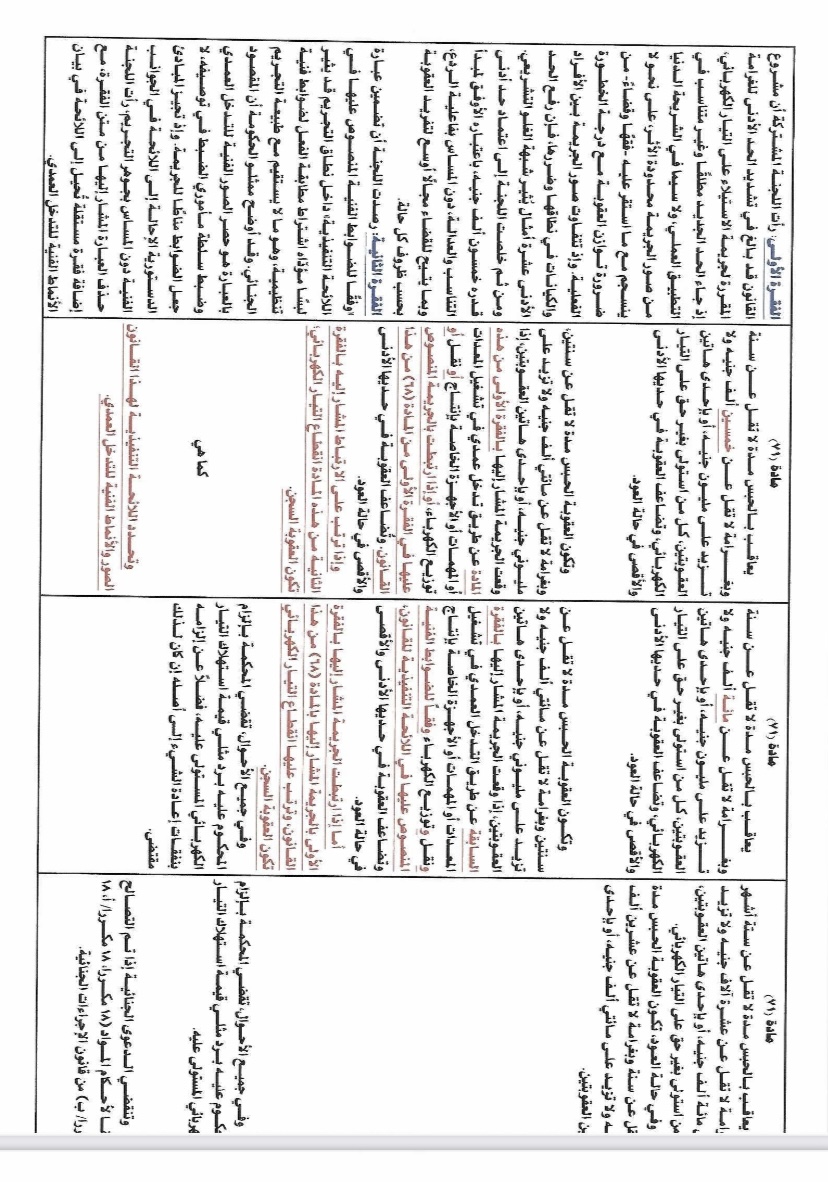 مادة (٧١)
يعاقب بالحبس مدة لا تقل عن ستة أشهر
رامة لا تقل عن عشرة آلاف جنيه ولا تزيد
مائة ألف جنيه، أو بإحدى هاتين العقوبتين،
من استولى بغير حق على التيار الكهربائي.
وفي حالة العود، تكون العقوبة الحبس مدة
قل عن سنة وبغرامة لا تقل عن عشرين ألف
ـه ولا تزيد على مائتي ألف جنيه، أو بإحدى
ـين العقوبتين.
وفي جميع الأحوال، تقضي المحكمة بإلزام
ـكوم عليه برد مثلي قيمة استهلاك التيار
ـهربائي المستولى عليه.
وتنقضي الدعوى الجنائية إذا تم التصالح
ـا لأحكام المواد (١٨ مكررا، ١٨ مكررا/ أ، ١٨
ـررا/ ب) من قانون الإجراءات الجنائية.
مادة (٧١)
يعاقب بالحبس مدة لا تقل عن سنة
وبغرامة لا تقل عن مائة ألف جنيه ولا
تزيد على مليون جنيه، أو بإحدى هاتين
العقوبتين، كل من استولى بغير حق على التيار
الكهربائي، وتضاعف العقوبة في حديها الأدنى
والأقصى في حالة العود.
وتكون العقوبة الحبس مدة لا تقل عن
سنتين وبغرامة لا تقل عن مائتي ألف جنيه ولا
تزيد على مليوني جنيه، أو بإحدى هاتين
العقوبتين، إذا وقعت الجريمة المشار إليها بالفقرة
السابقة عن طريق التدخل العمدي في تشغيل
المعدات أو المهمات أو الأجهزة الخاصة بإنتاج
ونقل وتوزيع الكهرباء وفقاً للضوابط الفنية
المنصوص عليها في اللائحة التنفيذية للقانون،
وتضاعف العقوبة في حديها الأدنى والأقصى
في حالة العود.
أما إذا ارتبطت الجريمة المشار إليها بالفقرة
الأولى بالجريمة المشار إليها بالمادة (٦٨) من هذا
القانون، وترتب عليها انقطاع التيار الكهربائي
تكون العقوبة السجن.
وفي جميع الأحوال، تقضي المحكمة بإلزام
المحكوم عليه برد مثلي قيمة استهلاك التيار
الكهربائي المستولى عليه، فضلاً عن إلزامه
بنفقات إعادة الشيء إلى أصله إن كان لذلك
مقتضى.
مادة (٧١)
يعاقب بالحبس مدة لا تقل عن سنة
وبغرامة لا تقل عن خمسين ألف جنيه ولا
تزيد على مليون جنيه، أو بإحدى هاتين
العقوبتين، كل من استولى بغير حق على التيار
الكهربائي، وتضاعف العقوبة في حديها الأدنى
والأقصى في حالة العود.
وتكون العقوبة الحبس مدة لا تقل عن سنتين،
وبغرامة لا تقل عن مائتي ألف جنيه ولا تزيد على
مليوني جنيه، أو بإحدى هاتين العقوبتين، إذا
وقعت الجريمة المشار إليها بالفقرة الأولى من هذه
المادة عن طريق تدخل عمدي في تشغيل المعدات
أو المهمات أو الأجهزة الخاصة بإنتاج أو نقل أو
توزيع الكهرباء، أو إذا ارتبطت بالجريمة المنصوص
عليها في الفقرة الأولى من المادة (٦٨) من هذا
القانون. وتُضاعف العقوبة في حديها الأدنى
والأقصى في حالة العود.
وإذا ترتب على الارتباط المشار إليه بالفقرة
الثانية من هذه المادة انقطاع التيار الكهربائي؛
تكون العقوبة السجن.
كما هي
وتحدد اللائحة التنفيذية لهذا القانون
الصور والأنماط الفنية للتدخل العمدي.
الفقرة الأولى: رأت اللجنة المشتركة أن مشروع
القانون قد بالغ في تشديد الحد الأدنى للغرامة
المقررة لجريمة الاستيلاء على التيار الكهربائي،
إذ جاء الحد الجديد مطلقًا وغير متناسب في
التطبيق العملي، ولا سيما في الشريحة الدنيا
من صور الجريمة محدودة الأثر، على نحو لا
ينسجم مع ما استقر عليه -فقهًا وقضاءً- من
ضرورة توازن العقوبة مع درجة الخطورة
الفعلية. وإذ تتفاوت صور الجريمة بين الأفراد
والكيانات في نطاقها وضررها، فإن رفع الحد
الأدنى عشرة أمثال يُثير شبهة الغلو التشريعي.
ومن ثم خلصت اللجنة إلى اعتماد حد أدنى
قدره خمسون ألف جنيه، باعتباره الأوفق لمبدأ
التناسب والعدالة، دون المساس بفاعلية الردع،
وبما يتيح للقضاء مجالًا أوسع لتفريد العقوبة
بحسب ظروف كل حالة.
الفقرة الثانية: رصدت اللجنة أن تضمين عبارة
"وفقًا للضوابط الفنية المنصوص عليها في
اللائحة التنفيذية" داخل نطاق التجريم قد يثير
لبسًا مؤدّاه اشتراط مطابقة الفعل لضوابط فنية
تنظيمية، وهو ما لا يستقيم مع طبيعة التجريم
الجنائي. وقد أوضح ممثلو الحكومة أن المقصود
بالعبارة هو حصر الصور الفنية للتدخل العمدي
وضبط سلطة مأموري الضبط في توصيفه، لا
جعل الضوابط مناطًا للجريمة. وإذ تجيز المبادئ
الدستورية الإحالة إلى اللائحة في الجوانب
الفنية دون المساس بجوهر التجريم، رأت اللجنة
حذف العبارة المشار إليها من متن الفقرة، مع
إضافة فقرة مستقلة تُحيل إلى اللائحة في بيان
الأنماط الفنية للتدخل العمدي.